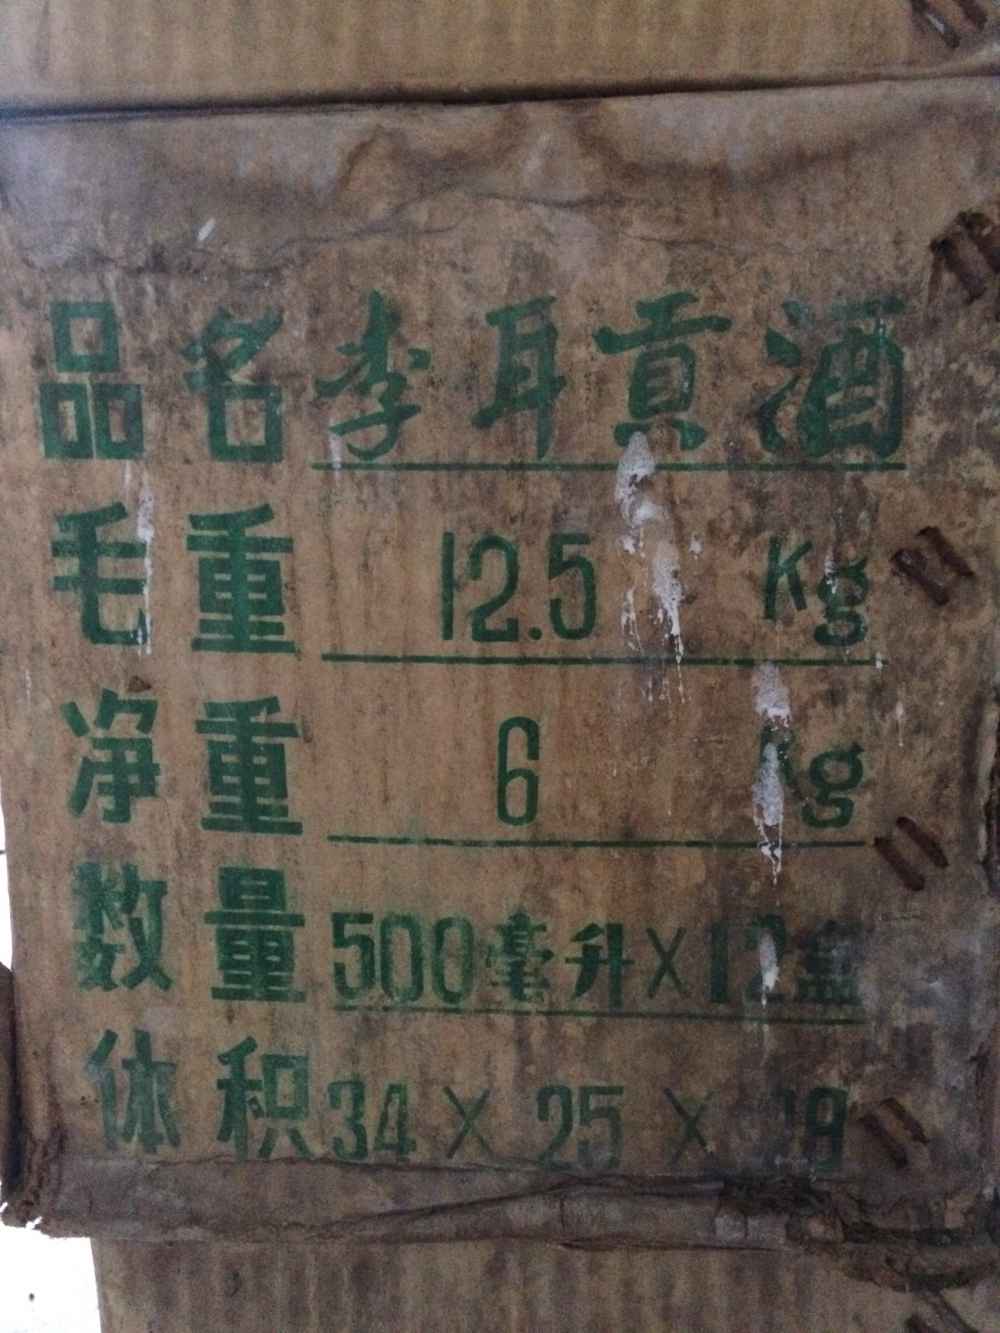 品名 李耳贡酒
毛重 12.5 Kg
净重 6 Kg
数量 500毫升×12盒
体积 34×25×